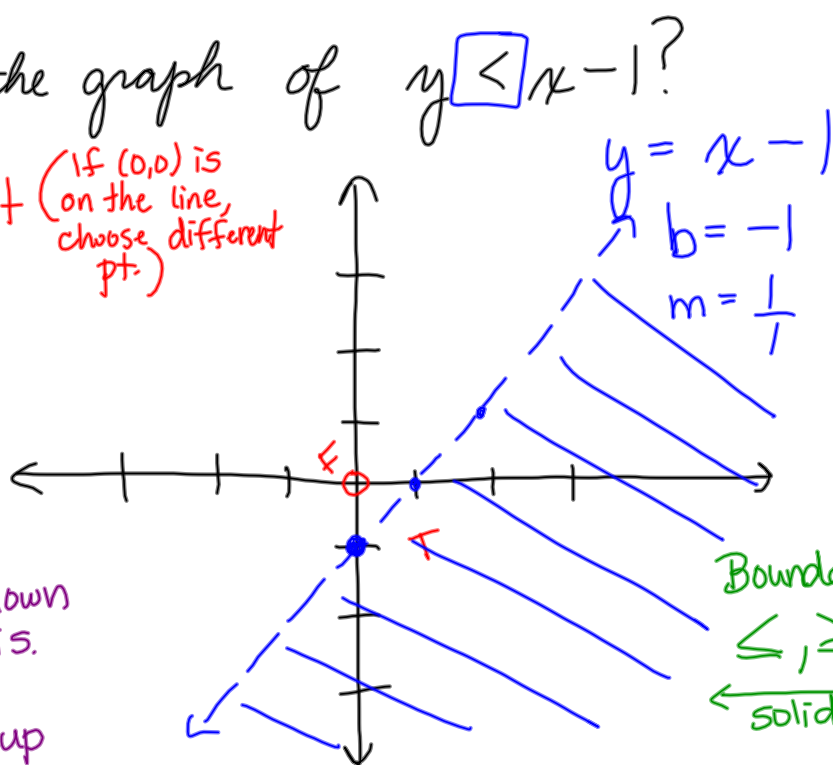 the graph of y < x - 1?
(If (0,0) is
on the line,
choose different
pt.)
y = x - 1
b = -1
m = 1/1
F
T
own
is.
up
Bounda
≤, ≥
solid